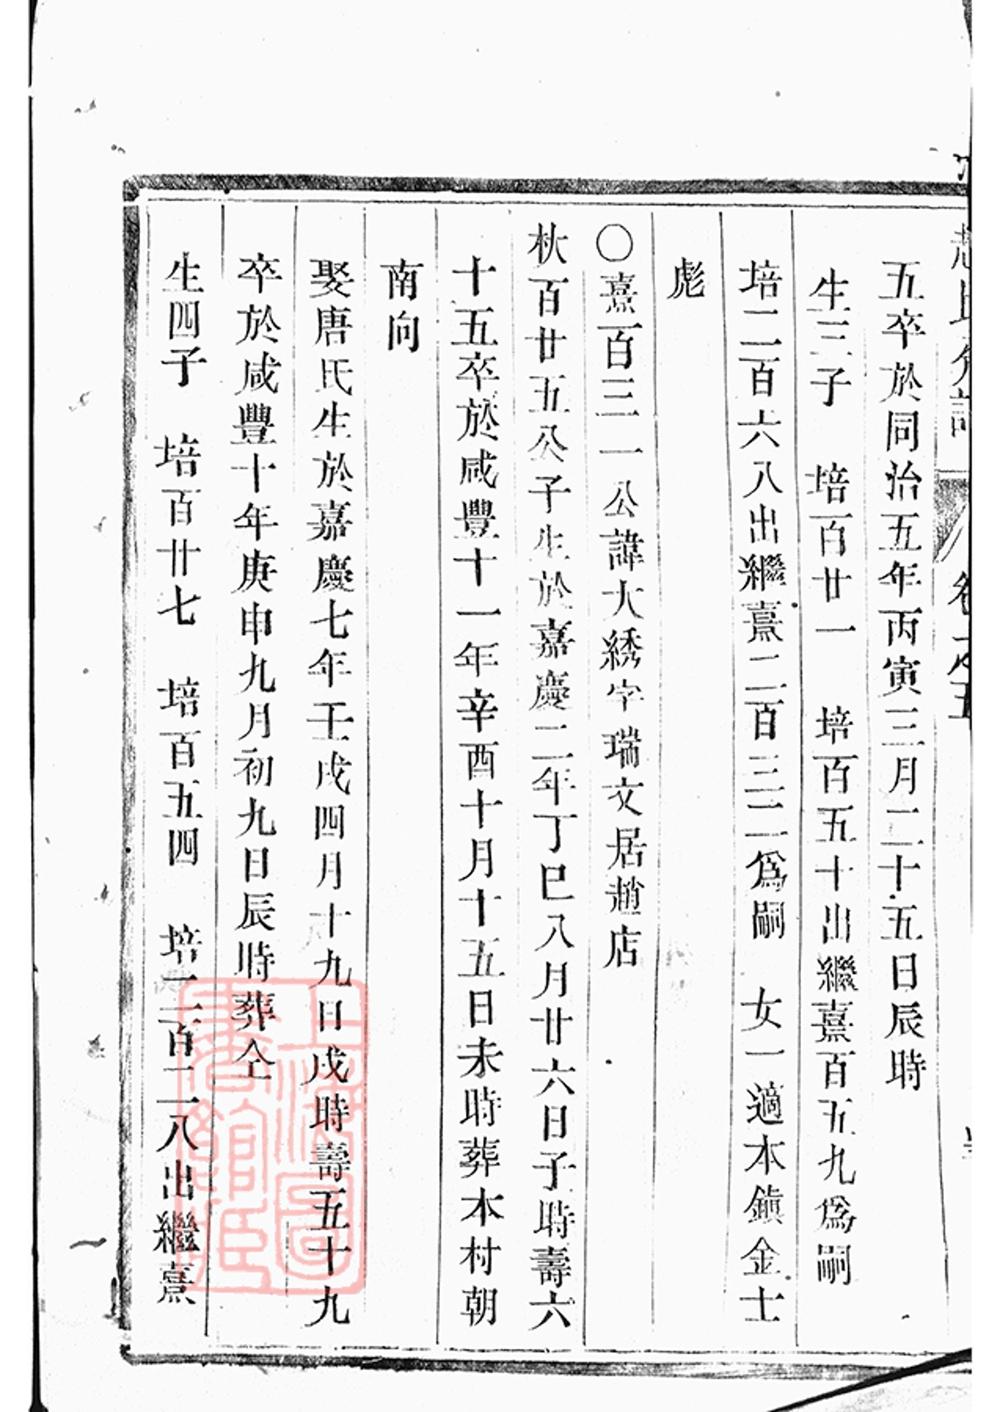 五卒於同治五年丙寅三月二十五日辰時
生三子 培百廿一 培百五十出繼熹百五九爲嗣
培二百六八出繼熹二百三二爲嗣 女一適本鎮金士
彪
〇熹百三一公諱大綉字瑞文居趙店
秋百廿五公子生於嘉慶二年丁巳八月廿六日子時壽六
十五卒於咸豐十一年辛酉十月十五日未時葬本村朝
南向
娶唐氏生於嘉慶七年壬戌四月十九日戌時壽五十九
卒於咸豐十年庚申九月初九日辰時葬仝
生四子 培百廿七 培百五四 培二百二八出繼熹
上海圖書館藏